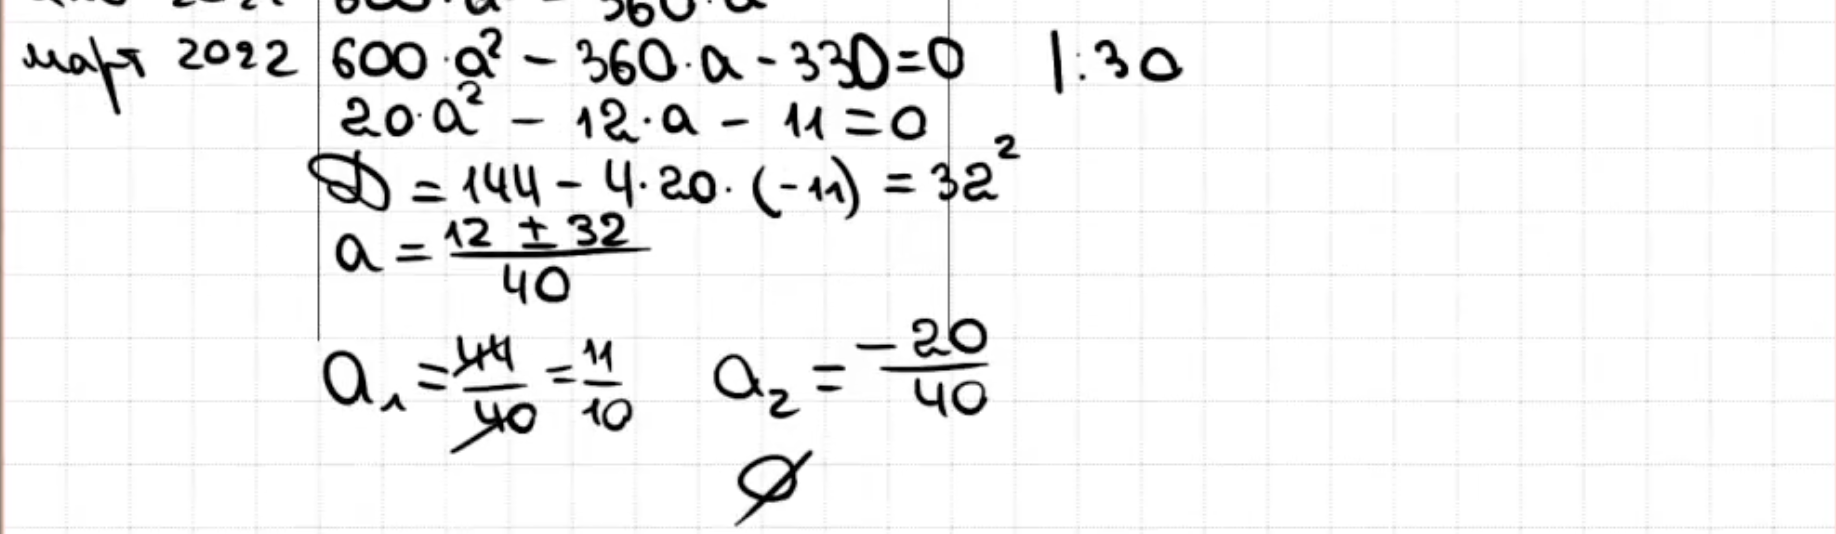 март 2022 600·a² - 360·a - 330=0 |:30
20·a² - 12·a - 11=0
D = 144 - 4·20·(-11) = 32²
a = (12 ± 32)/40
a₁ = 44/40 = 11/10 a₂ = -20/40
∅